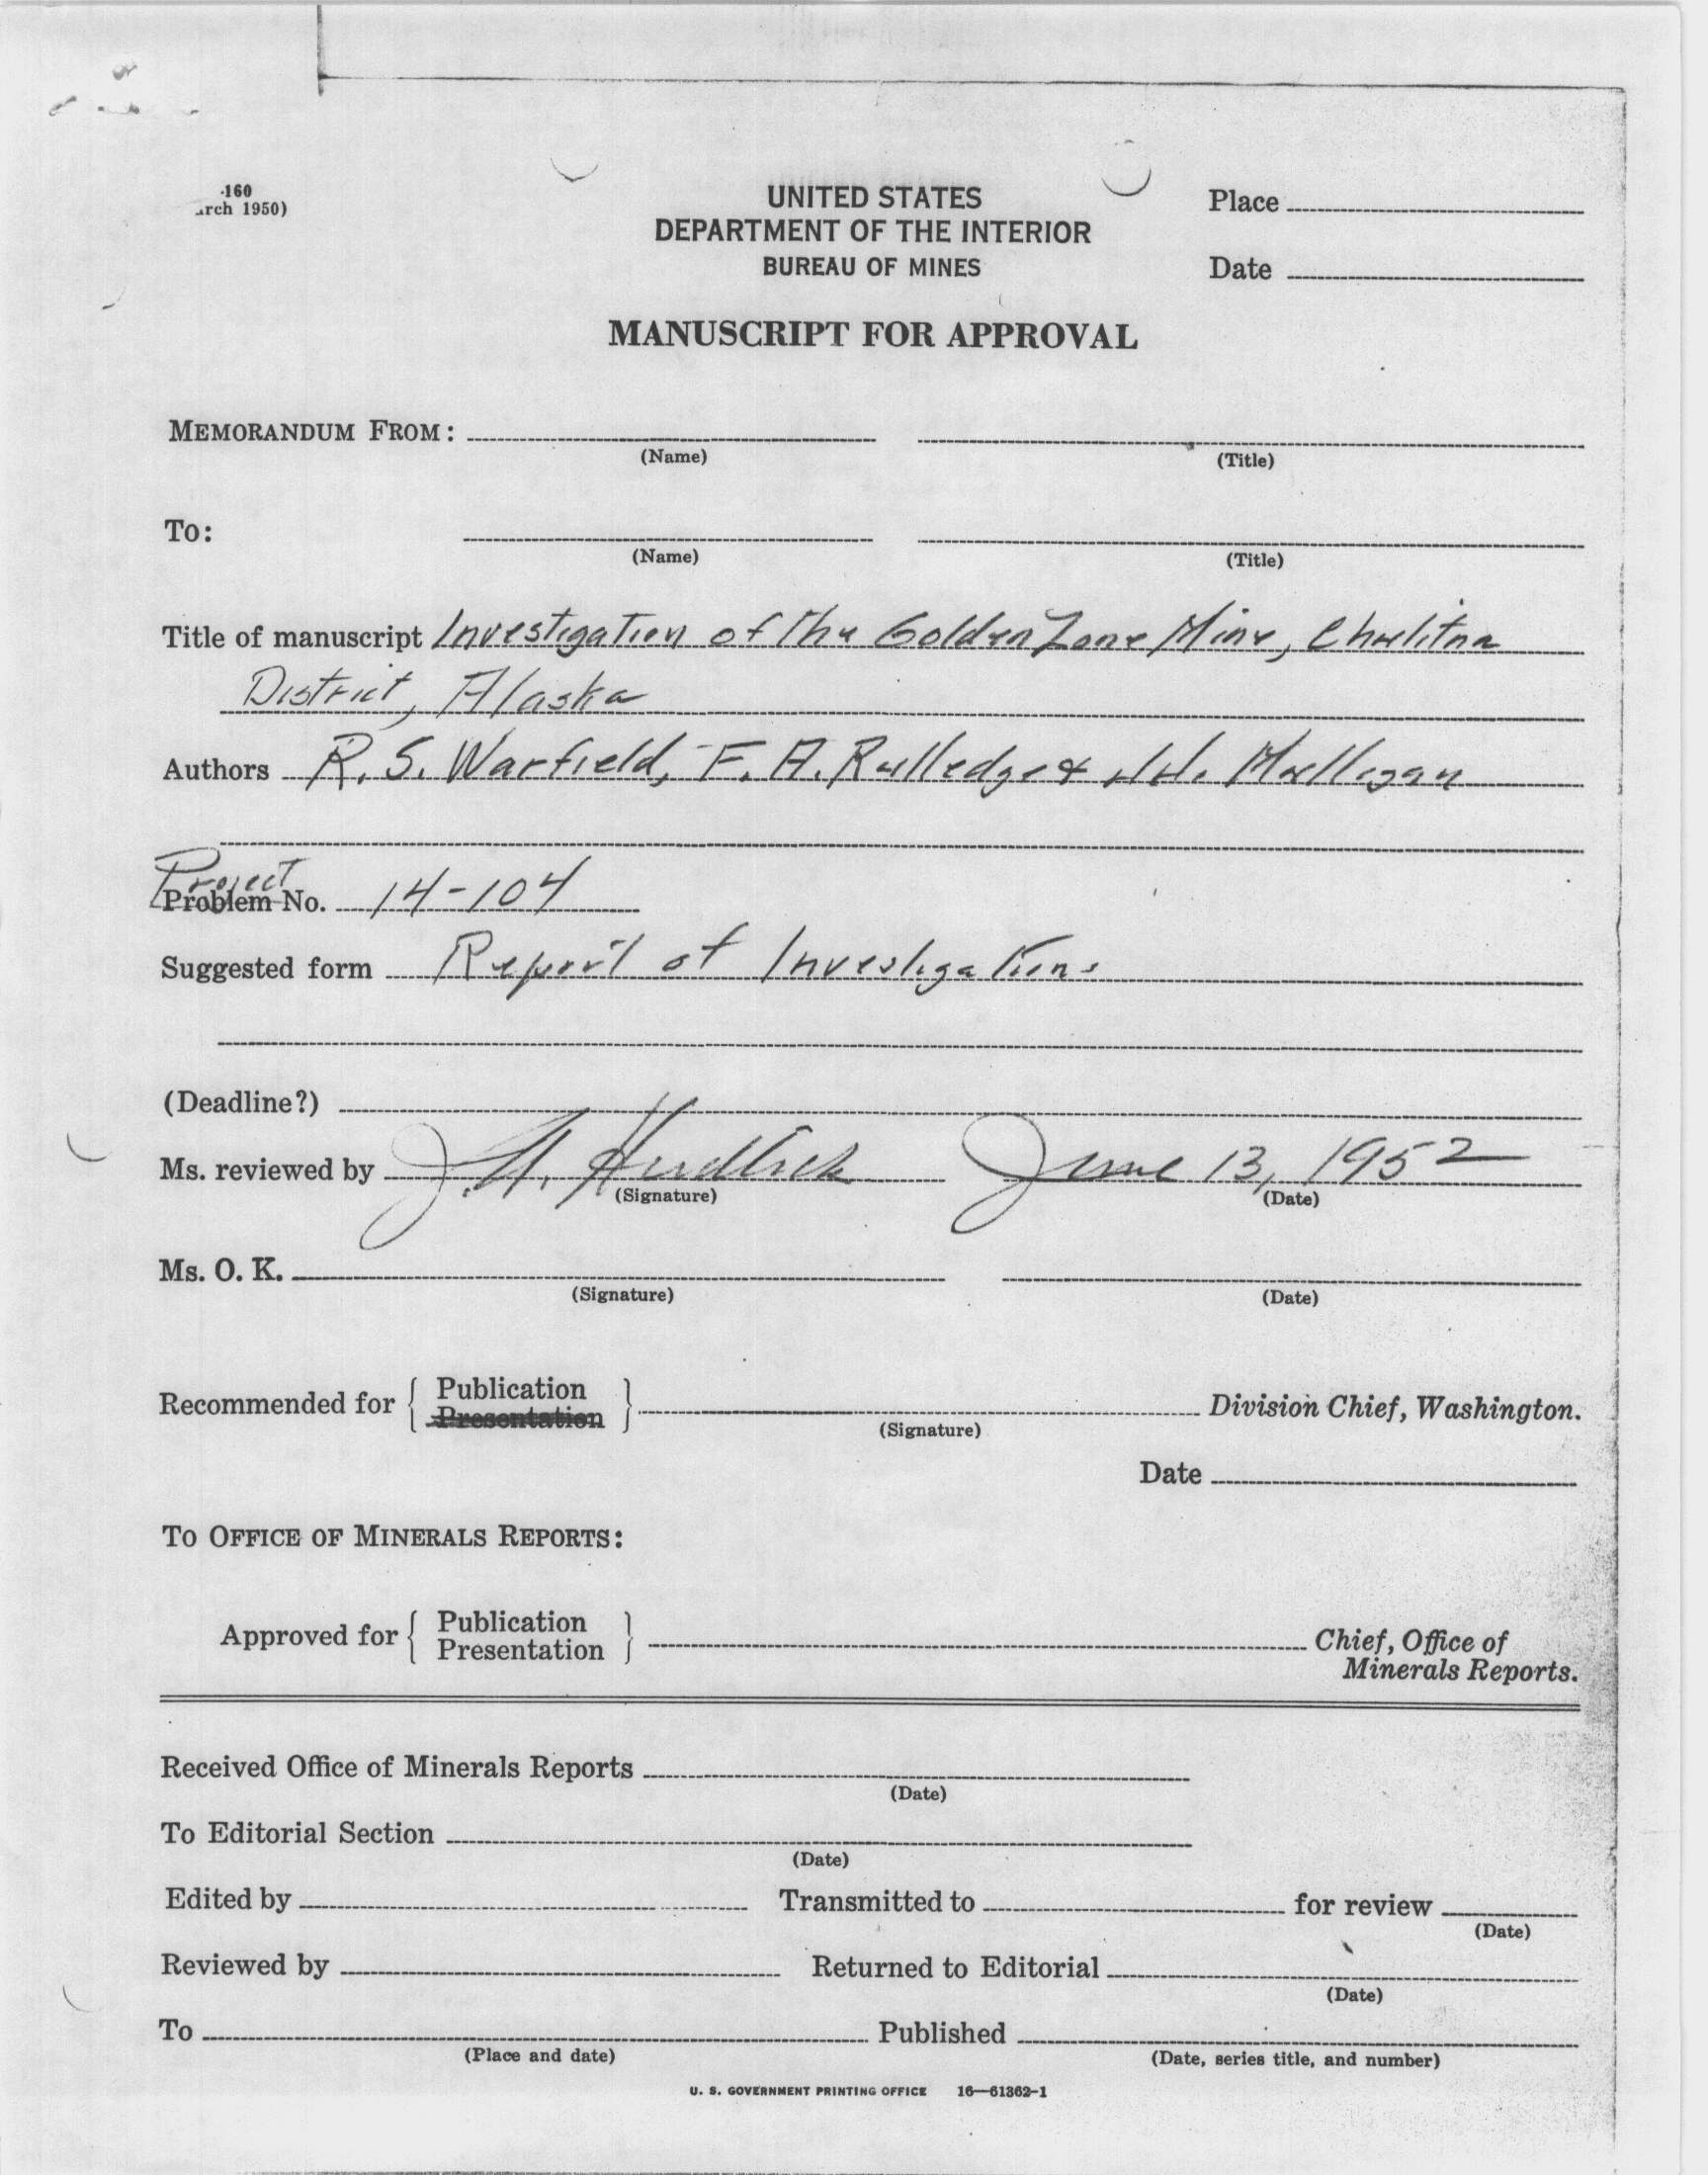 -160
arch 1950)
UNITED STATES
DEPARTMENT OF THE INTERIOR
BUREAU OF MINES
Place
Date
MANUSCRIPT FOR APPROVAL
MEMORANDUM FROM:
(Name) (Title)
To:
(Name) (Title)
Title of manuscript Investigation of the Golden Zone Mine, Chulitna
District, Alaska
Authors R. S. Warfield, F. A. Rutledge & J.J. Mulligan
Project
Problem No. 14-104
Suggested form Report of Investigations
(Deadline?)
Ms. reviewed by June 13, 1952
(Signature) (Date)
Ms. O. K.
(Signature) (Date)
Recommended for { Publication
Presentation } Division Chief, Washington.
(Signature)
Date
TO OFFICE OF MINERALS REPORTS:
Approved for { Publication
Presentation } Chief, Office of
Minerals Reports.
Received Office of Minerals Reports
(Date)
To Editorial Section
(Date)
Edited by Transmitted to for review
(Date)
Reviewed by Returned to Editorial
(Date)
To Published
(Place and date) (Date, series title, and number)
U. S. GOVERNMENT PRINTING OFFICE 16—61362-1